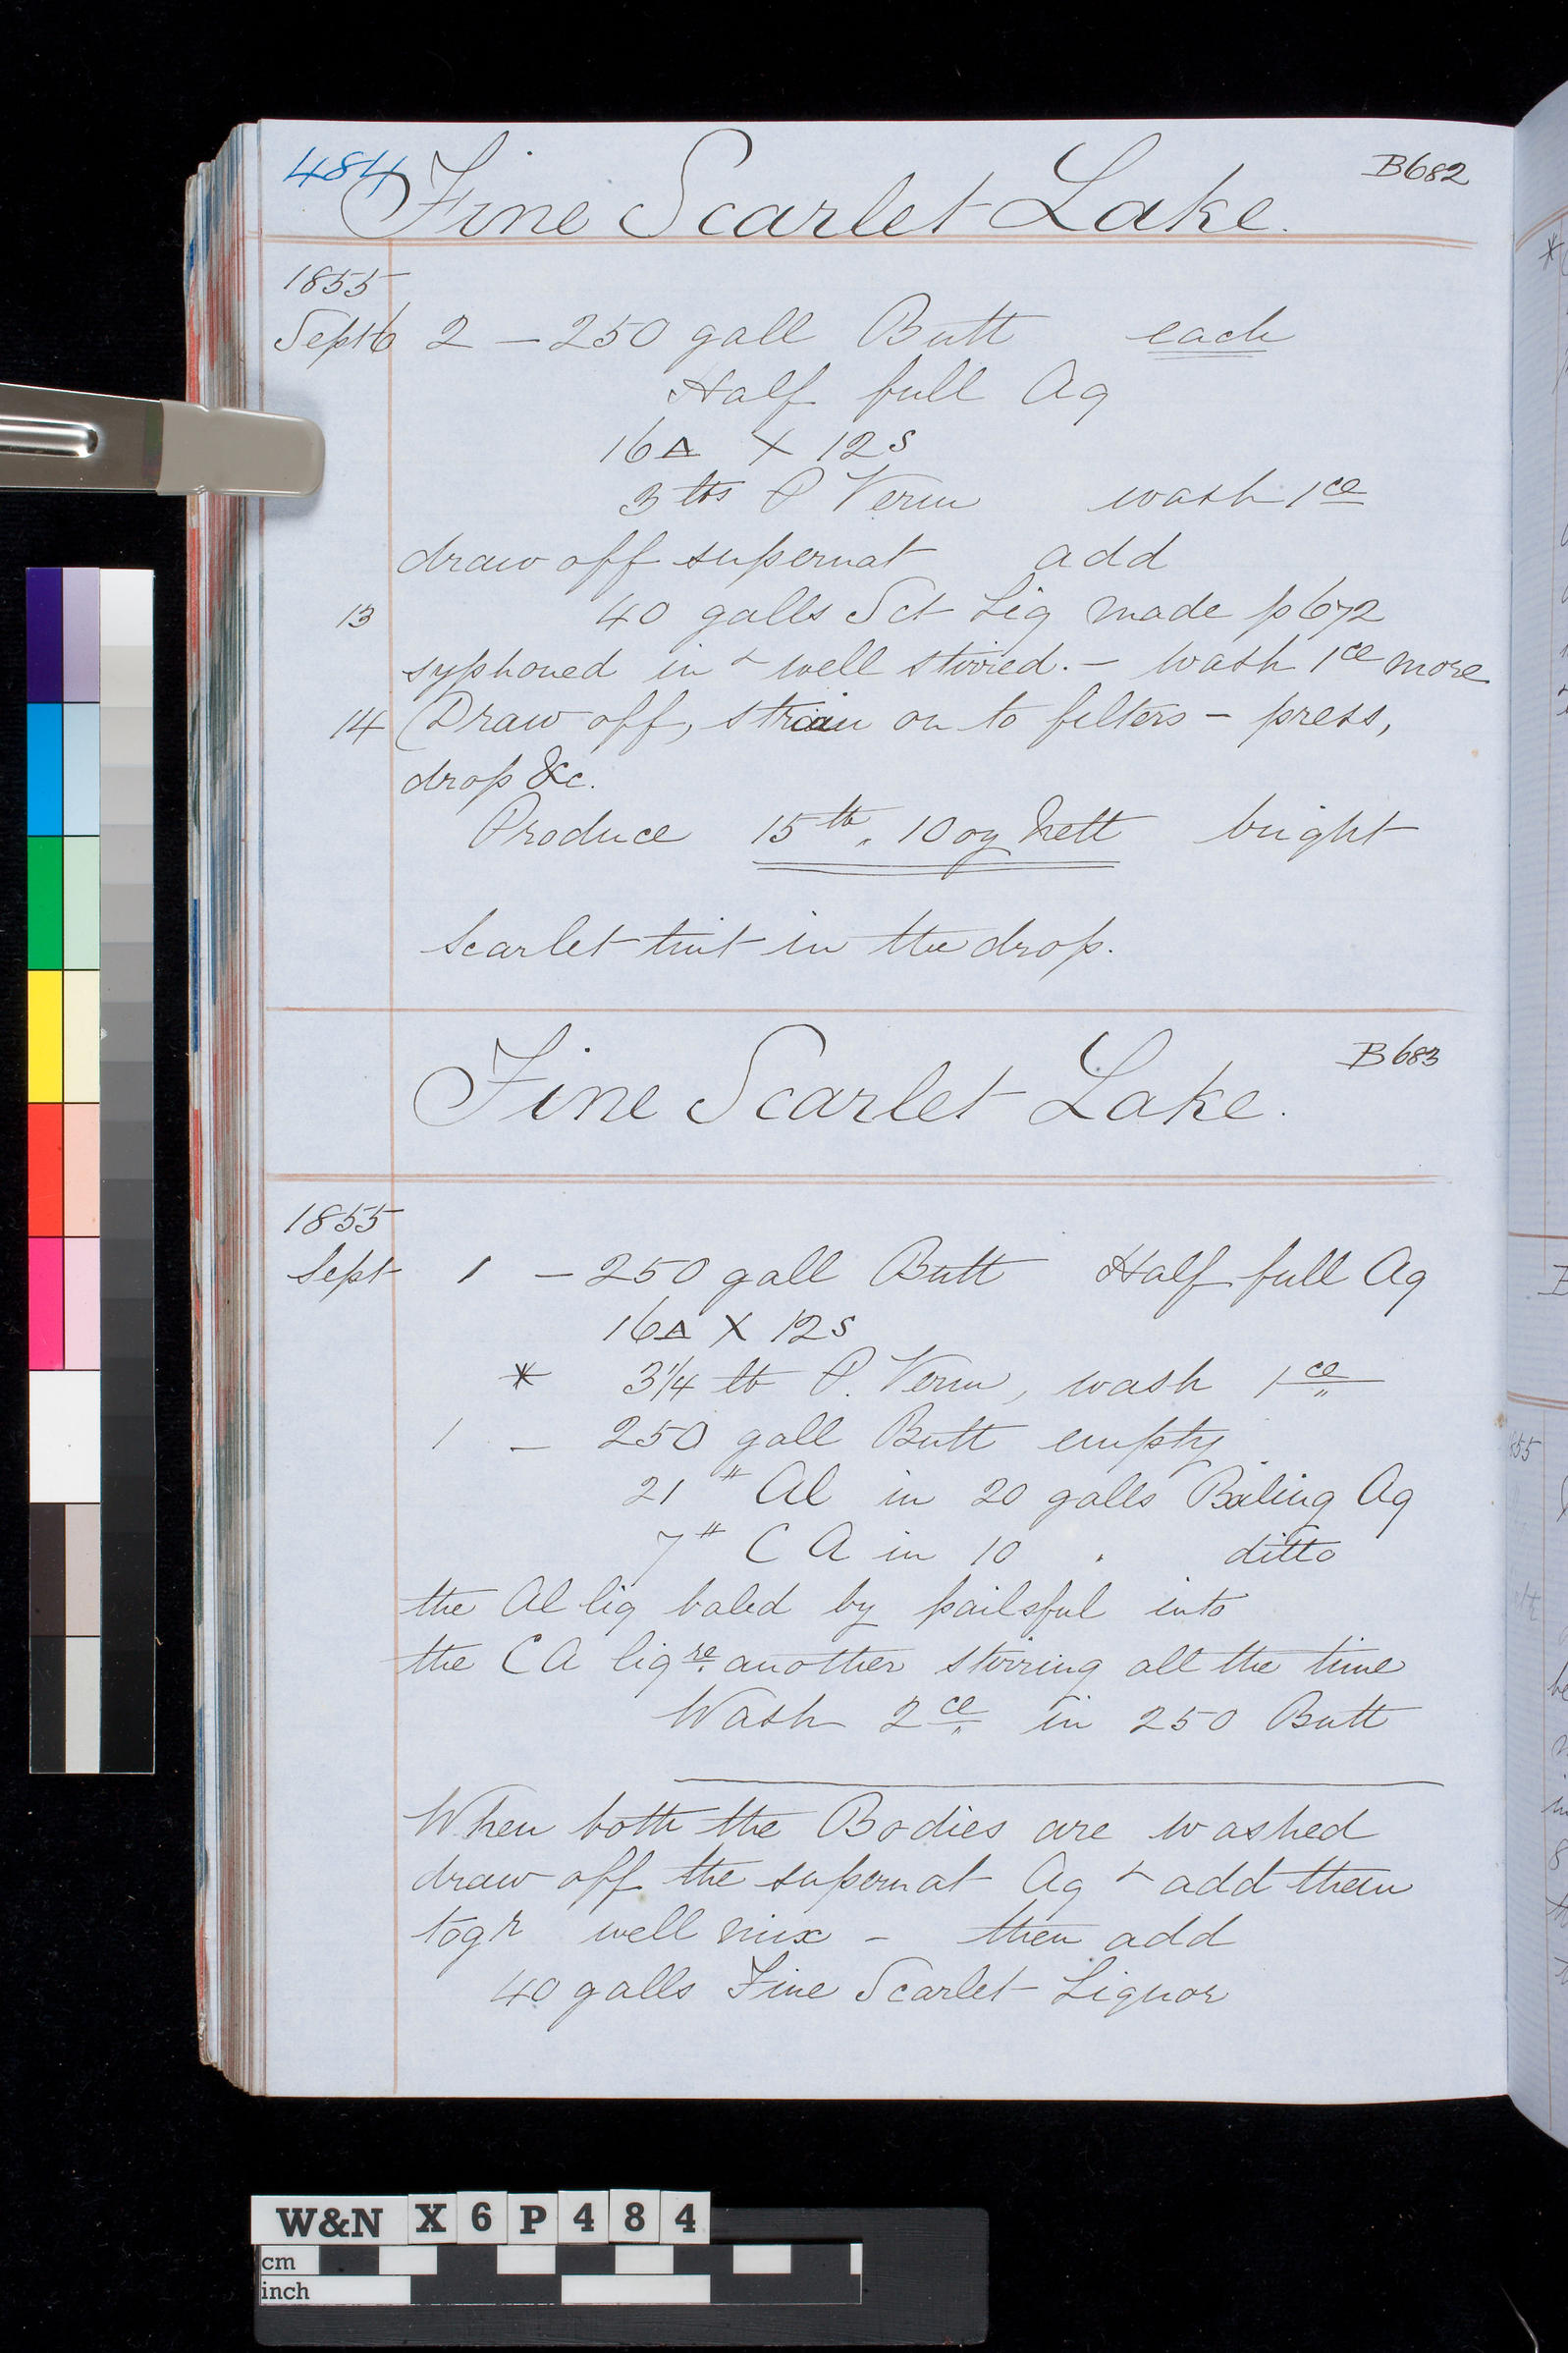 484 Fine Scarlet Lake. B682
1855
Sept 6 2 – 250 gall Butt each
Half full Aq
16 Δ X 12 S
3 lbs P Verm wash 1ce
draw off supernat add
13 40 galls Sct Liq made p 672
syphoned in & well stirred. – wash 1ce more
14 Draw off, strain on to filters – press,
drop &c.
Produce 15 lb „ 10 oz Nett bright
scarlet tint in the drop.
Fine Scarlet Lake. B683
1855
Sept 1 – 250 gall Butt Half full Aq
16 Δ X 12 S
* 3 1/4 lb P. Verm, wash 1ce
1 – 250 gall Butt empty
21 # Al in 20 galls Boiling Aq
7 # C A in 10 „ ditto
the Al liq baled by pailsful into
the C A liq re another stirring all the time
Wash 2ce in 250 Butt
When both the Bodies are washed
draw off the supernat Aq & add them
togr well mix – then add
40 galls Fine Scarlet Liquor
W&N X 6 P 4 8 4
cm
inch